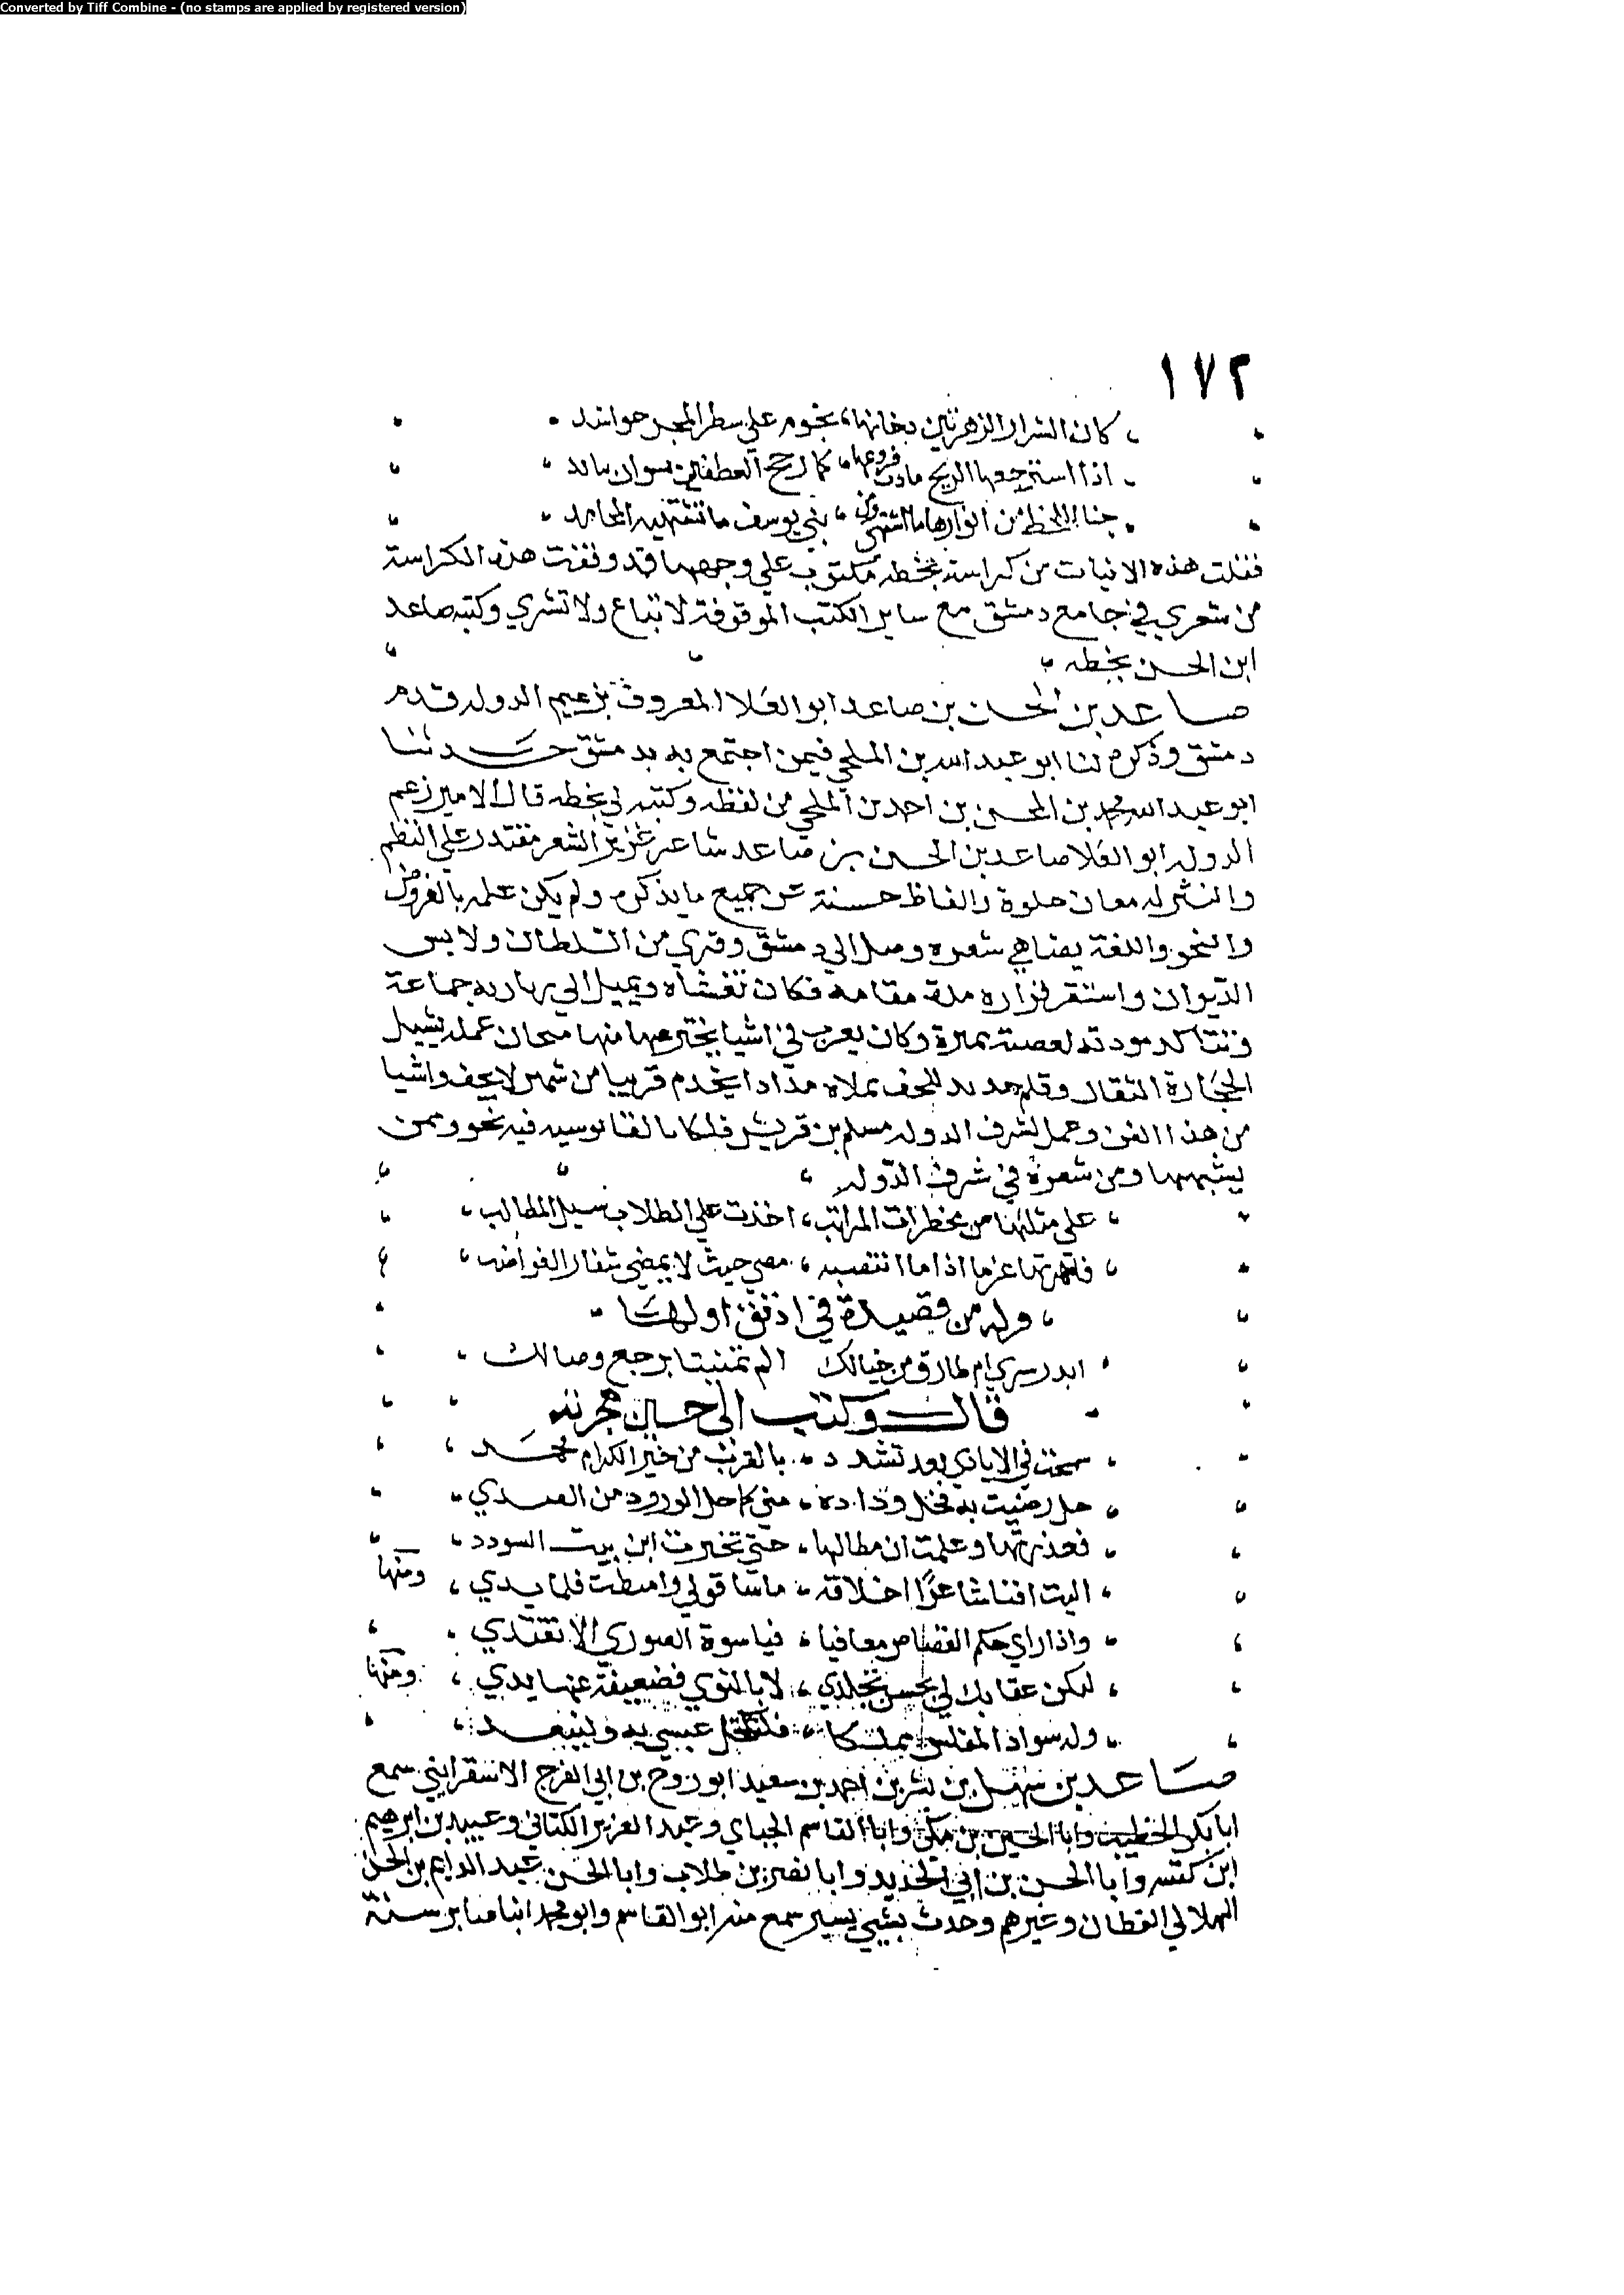 Converted by Tiff Combine - (no stamps are applied by registered version)
١٧٢
كان الشرار الزهر بين دخانها نجوم علي سطر المجر حواشد
اذا استرجعها الريح مادت فروعها كما رجح العطفين نسوان
من انوارها ما اشتهى بني يوسف ما تشتهيه المحامد
نقلت هذه الابيات من كراسة بخطه مكتوب علي وجهها قد وقفت هذه الكراسة
من شعري في جامع دمشق مع ساير الكتب الموقوفة لا تباع ولا تشري وكتبه صاعد
ابن الحسن بخطه
صاعد بن الحسن بن صاعد ابو العلا المعروف بزعيم الدوله قدم
دمشق وذكره لنا ابو عبد الله بن الملحي فيمن اجتمع به بدمشق حدثنا
ابو عبد الله محمد بن المحسن بن احمد بن الملحي من لفظه وكتبه لي بخطه قال الامير زعيم
الدوله ابو العلا صاعد بن الحسن بن صاعد شاعر غزير الشعر مقتدر علي النظم
والنثر له معان حلوة والفاظ حسنة عن جميع ما يذكره ولم يكن علمه بالعروض
والنحو واللغة يضاهي شعره وصل الي دمشق وقري من السلطان ولابس
الديوان واستقر قراره مدة مقامه فكان تغشاه ويميل الي جماعة
وتتاكد مودته وكان يعرب في اشيا يخترعها منها عمله يشيل
الحجارة الثقال وقلم حديد يملاه مدادا يخدم قريبا من شهر لا يجف واشيا
من هذا الفن وعمل لشرف الدوله مسلم بن قريش فيه نحو وممن
يشبهها ومن شعره في شرف الدوله
علي مثلها من مخطرات المراتب اخذت علي الطلاب سبل المطالب
عزما اذا ما انتضيته مضي حيث لا يمضي شفار القواضب
وله من قصيدة في اولها
ابدر سري ام طارق من خيالك الم تمنيتا برجع وصالك
قال وكتب الى حسين
سمحت في الايادي بعد تشدد بالقرب من خير الكرام محمد
هل رضيت به فحل وداده مني محل الورود من الصدي
فعذرتها وعلمت ان مطالها حتي تخيرت ابن بيت السودد
اخلاقه ما شا قولي فلما يدي ومنها
واذا راي حكم القصاص معاقبا فباسوة الصوري الا تقتدي
لكن عقابك لي بحسن تجلدي لا بالنوي فضعيفة عنها يدي ومنها
وله سواد
صاعد بن سهل بن بشر بن احمد بن سعيد ابو روح بن ابي الفرج الاسفرايني سمع
ابا بكر الخطيب وابا الحسين بن مكي وابا القاسم الجباي وعبد العزيز الكتاني وعبيد بن ابرهيم
ابن وابا الحسن بن ابي الحديد وابا نصر بن طلاب وابا الحسن عبد الدايم بن الحسن
الهلالي القطان وغيرهم وحدث بشي يسير سمع منه ابو القاسم وابو محمد ابنا صابر سنة